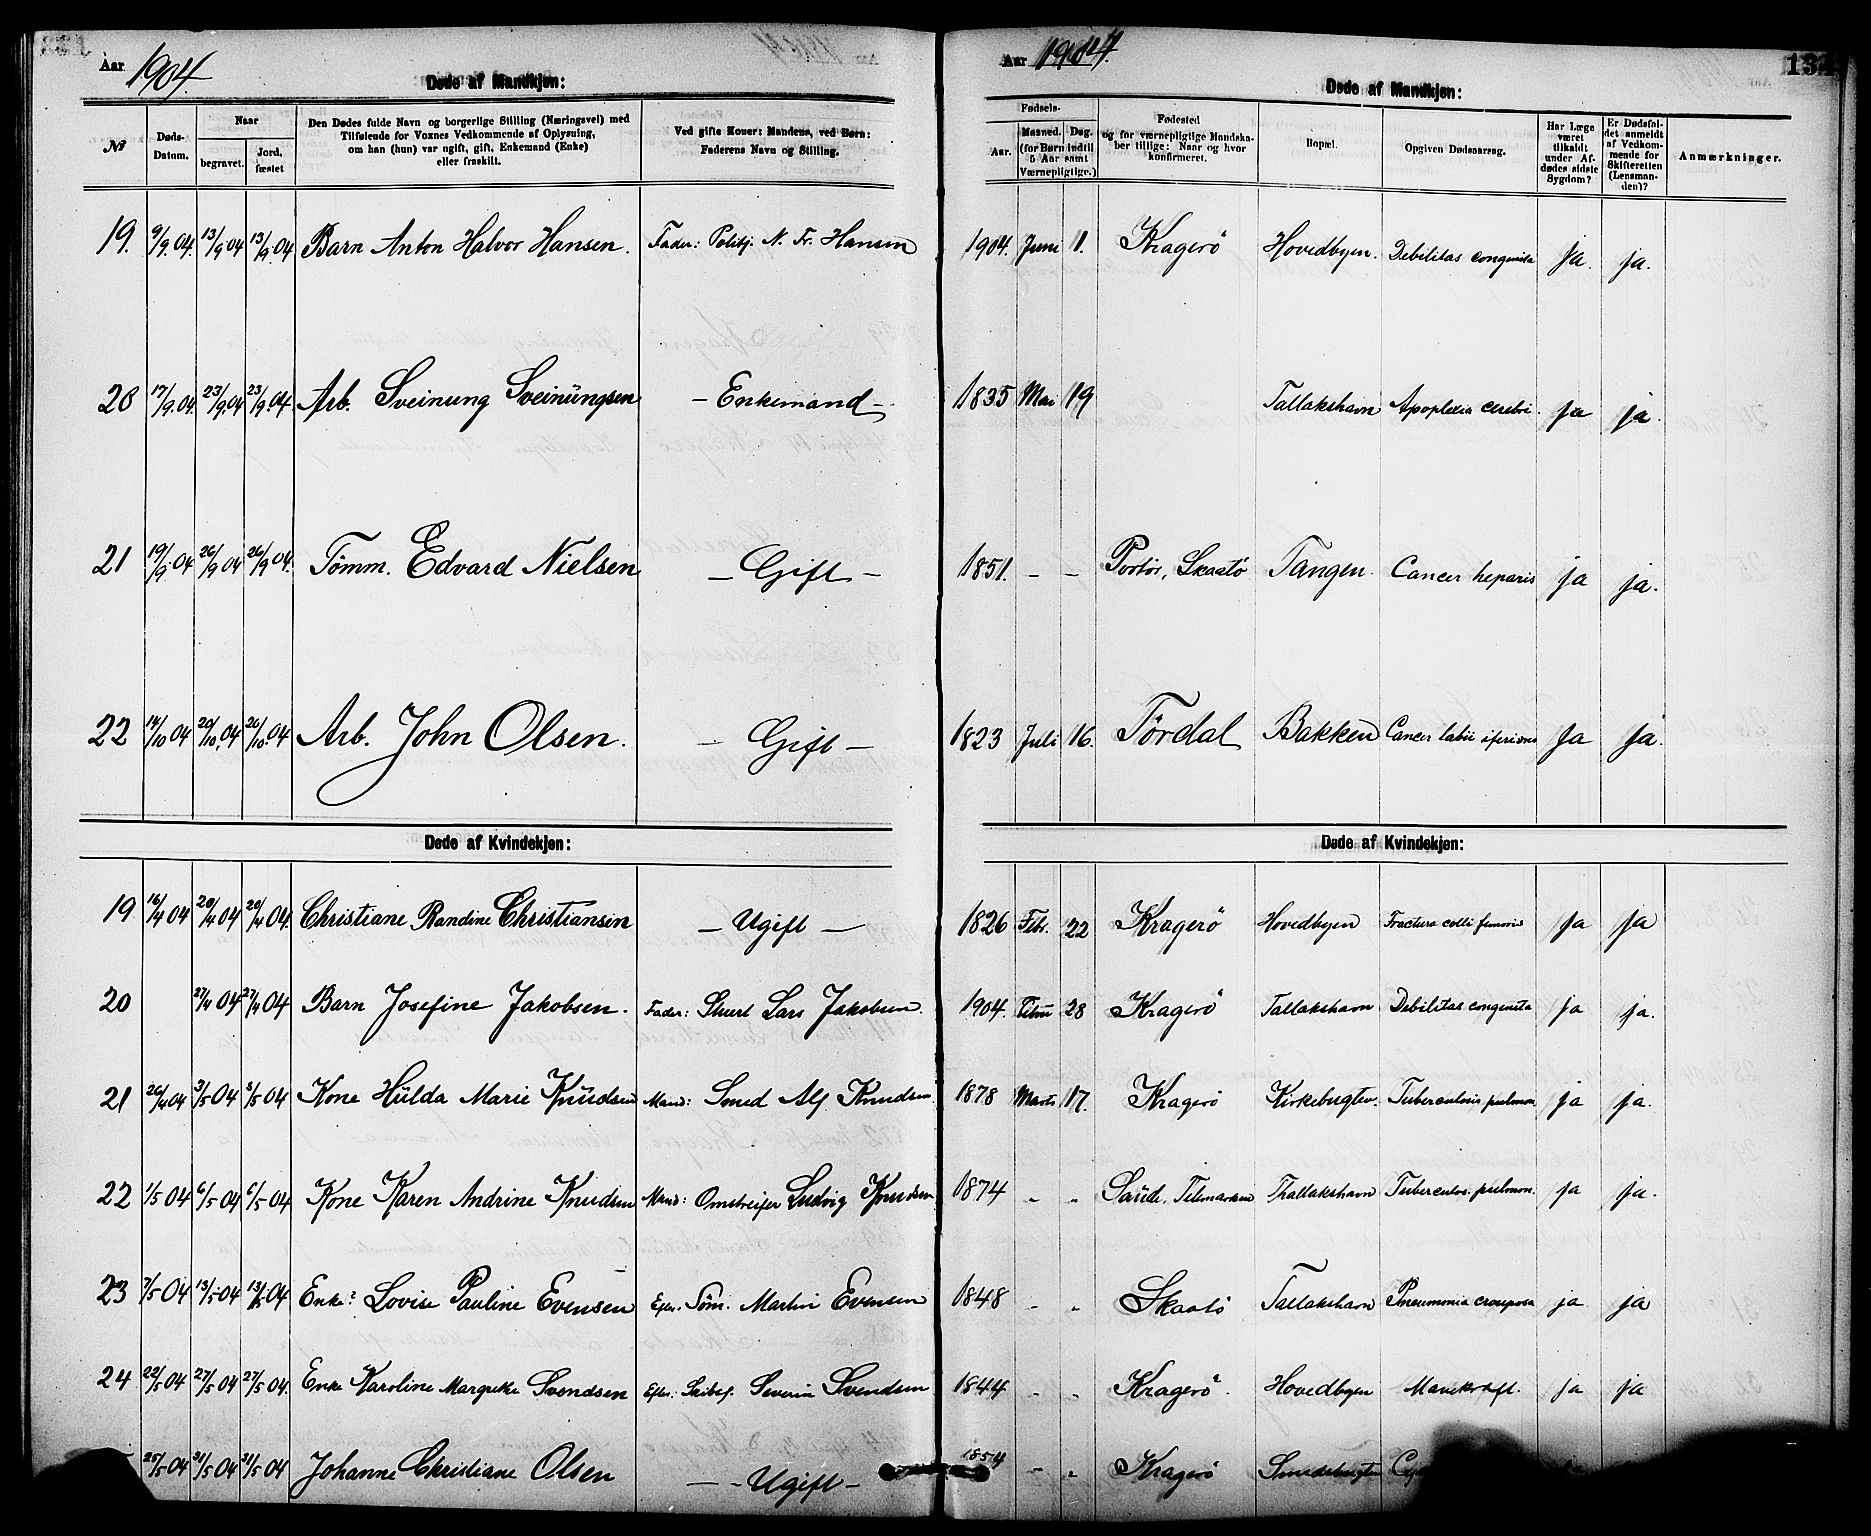 Aar 1904.
Døde af Mandkjøn:
№
Døds-Datum.
Naar
begravet.
Jord, fæstet
Den Dødes fulde Navn og borgerlige Stilling (Næringsvei) med
Tilføiende for Voxnes Vedkommende af Oplysning,
om han (hun) var ugift, gift, Enkemand (Enke)
eller fraskilt.
Ved gifte Koner: Mandens, ved Børn:
Faderens Navn og Stilling.
19. 9/9.04. 13/9 04 13/9.04 Barn Anton Halvor Hansen. Fader: Politj. N. Fr. Hansen
20 17/9.04. 23/9.04 23/9.04 Arb. Sveinung Sveinüngsen – Enkemand –
21 19/9.04 26/9 04 26/9 04. Tömm. Edvard Nielsen – Gift –
22 14/10 04 20/10.04 20/10.04 Arb. John Olsen. – Gift –
Døde af Kvindekjøn:
19 16/4 04 20/4 04 20/4 04. Christiane Randine Christiansen – Ugift –
20 27/4 04 27/4 04 Barn Josefine Jakobsen. Fader: Stuert Lars Jakobsen.
21 26/4 04 3/5 04 3/5 04 Kone Hülda Marie Knüdsen Mand: Smed Alf Knudsen.
22 1/5 04 6/5 04 6/5 04 Kone Karen Andrine Knudsen Mand: Omstreifer Ludvig Knudsen
23 7/5 04 13/5 04 13/5 04 Enke: Lovise Pauline Evensen Efter. Töm. Martin Evensen
24 22/5 04 27/5 04 27/5 04. Enke Karoline Margreke Svendsen Efter. Skibsf. Severin Svendsen
25/5 04 31/5 04 31/5 04 Johanne Christiane Olsen – Ugift –
Aar 1904.
134
Døde af Mandkjøn:
Fødsels-
Aar.
Maaned. Dag.
(for Børn indtil
5 Aar samt
Værnepligtige.)
Fødested
og for værnepligtige Mandska-
ber tillige: Naar og hvor
konfirmeret.
Bopæl.
Opgiven Dødsaarsag.
Har Læge
været
tilkaldt
under Af-
dødes sidste
Sygdom?
Er Dødsfal-
det anmeldt
af Vedkom-
mende for
Skifteretten
(Lensman-
den)?
Anmærkninger.
1904. Juni 1. Kragerö Hovedbyen. Debilitas congenita ja. ja.
1835 Mai 19 Tallakshavn Apoplexia cerebri. ja ja.
1851. – – Portör, Skaatö Tangen. Cancer heparis ja ja.
1823 Juli 16. Tördal Bakken Cancer labii ja ja.
Døde af Kvindekjøn:
1826 Febr. 22 Kragerö Hovedbyen Fractura colli femoris ja ja
1904. 28 Kragerö Tallakshavn Debilitas congenita ja ja.
1878 Marts 17. Kragerö Kirkebugten. Tuberculosis pulmon. ja ja.
1874 „ „ Saude, Telemarken Thallakshavn Tuberculos. pulmon. ja ja.
1848 – „ Skaatö Tallakshavn Pneumonia crouposa ja ja
1844 – „ Kragerö. Hovedbyen Mavekræft. ja ja
1854 – „ Kragerö Smedsbugten